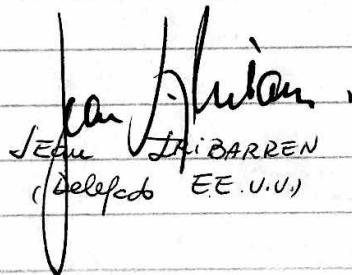 Jean Iribarren
JEAN IRIBARREN
(Delegado EE.UU.)